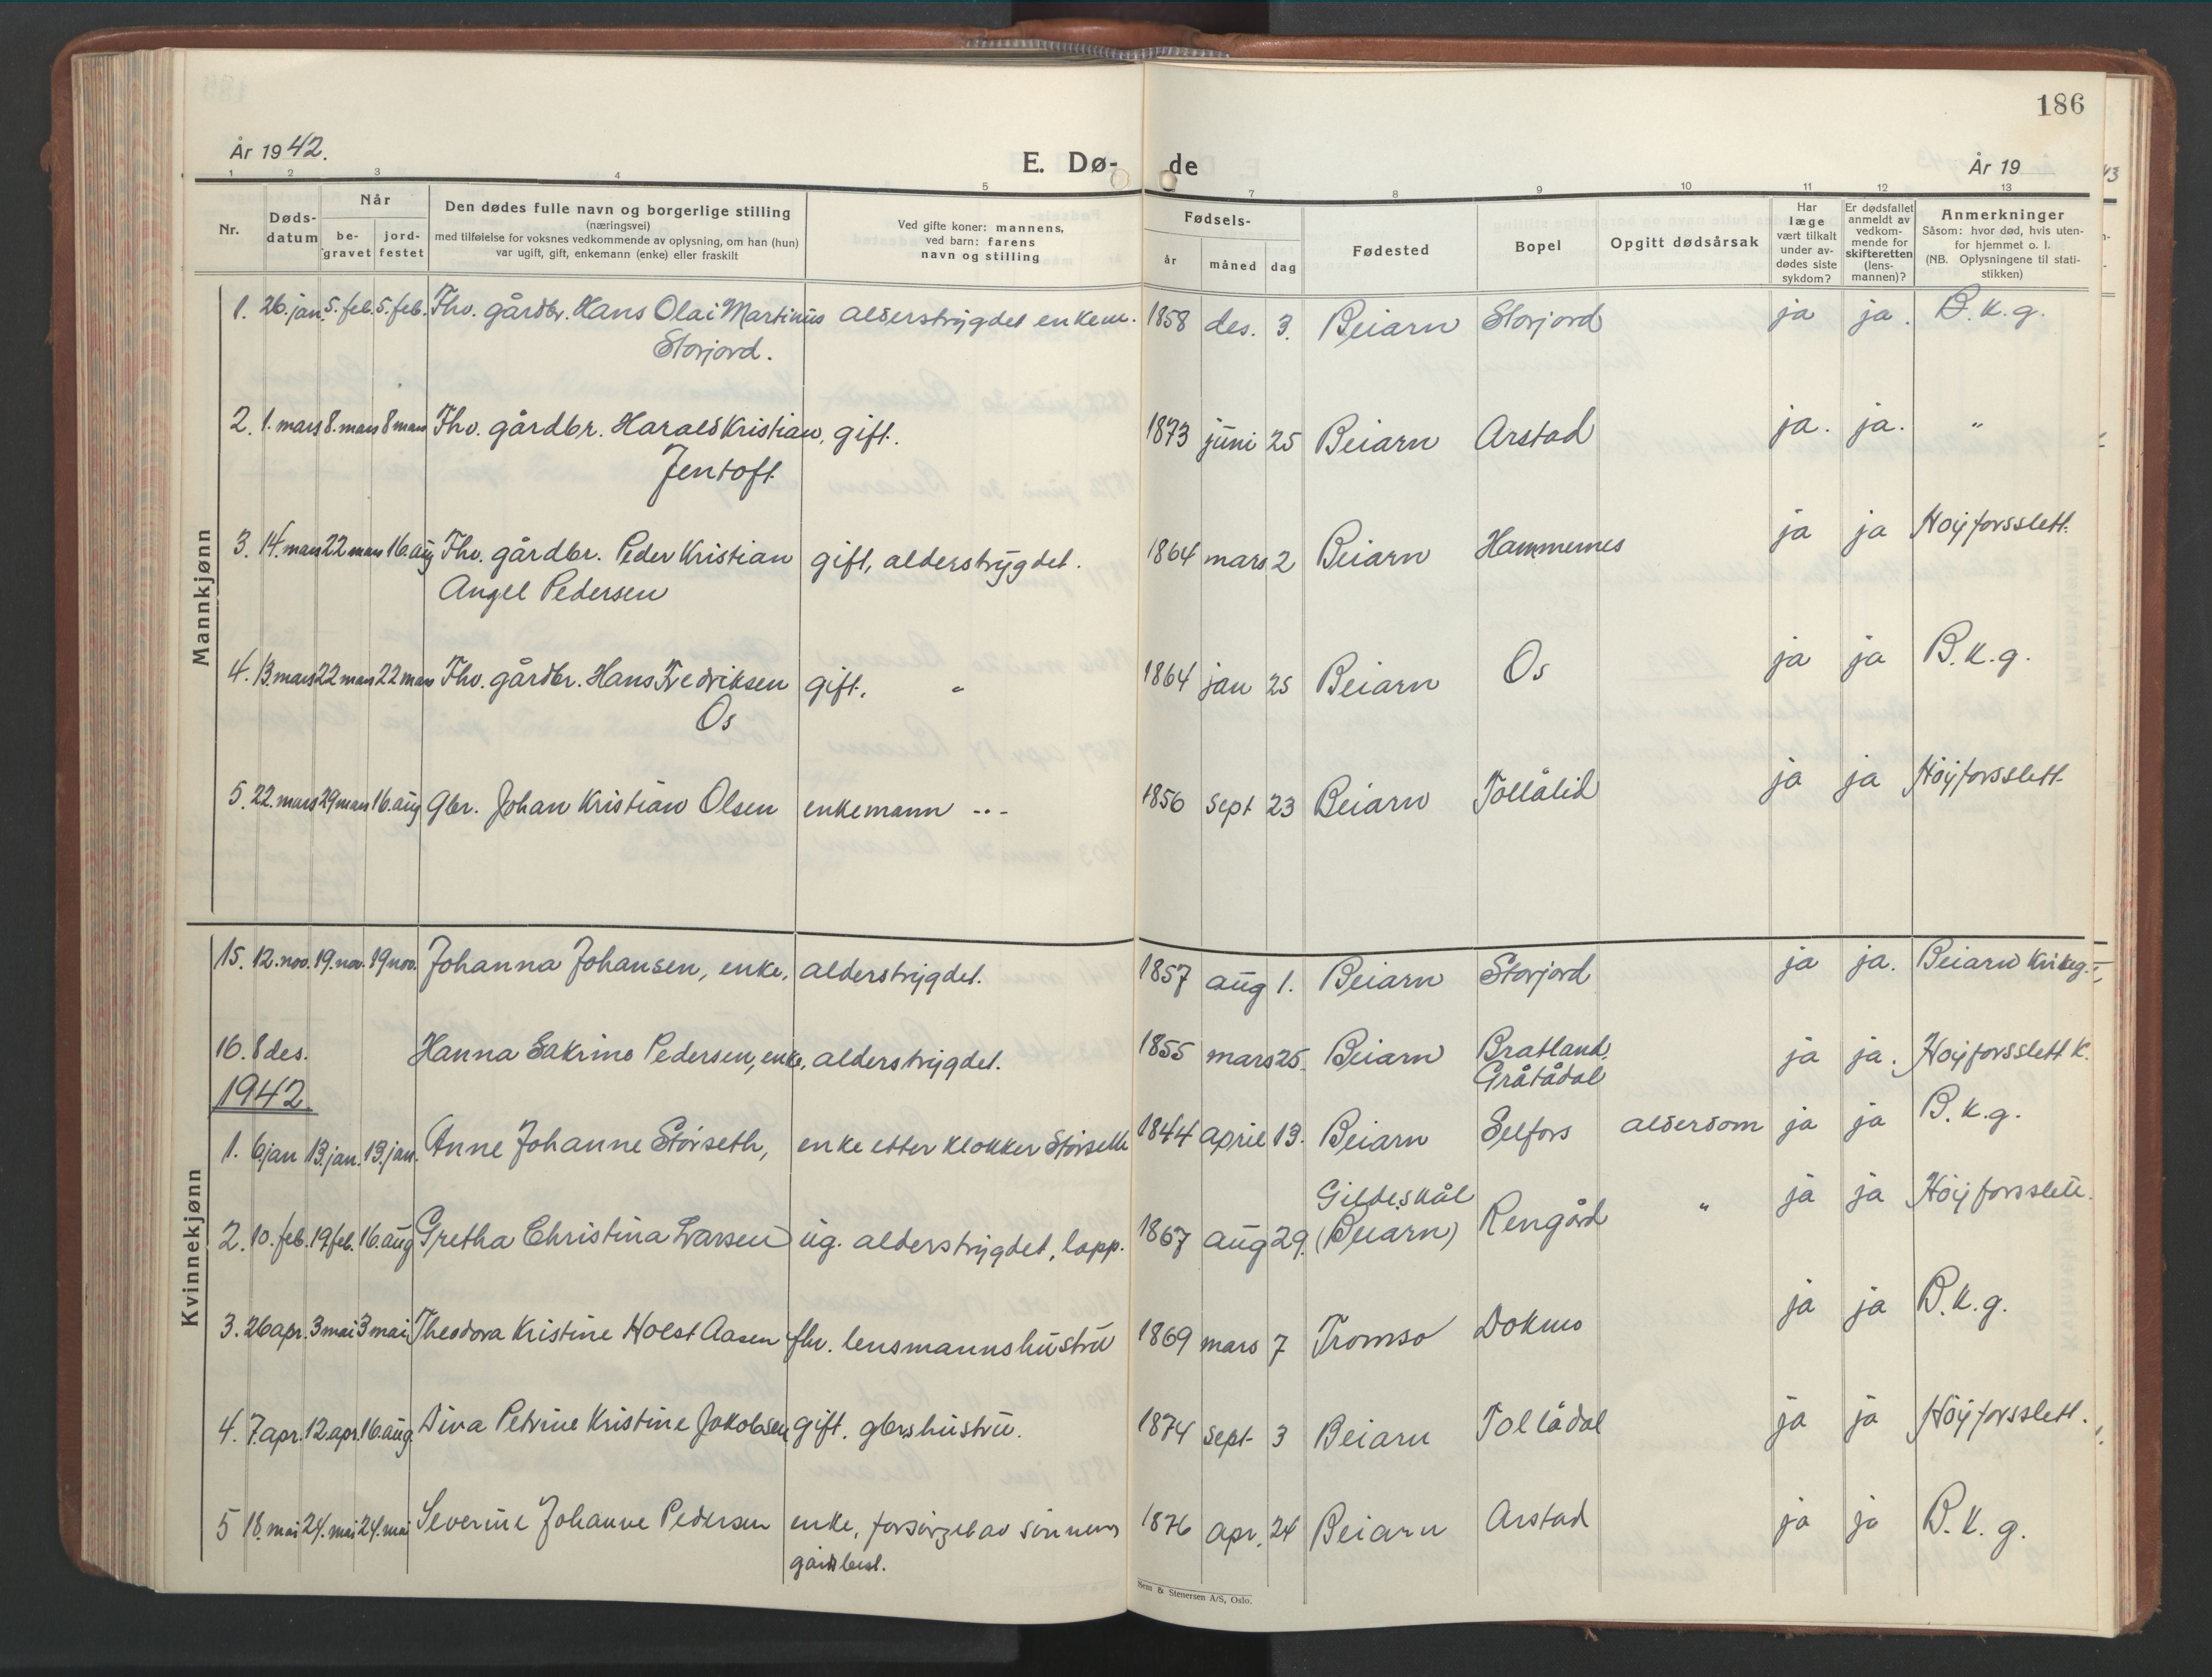 186
År 1942.
E. Dø-
de
År 19
1 2 3 4 5 7 8 9 10 11 12 13
Nr.
Døds-
datum
Når
be-
gravet
jord-
festet
Den dødes fulle navn og borgerlige stilling
(næringsvei)
med tilføielse for voksnes vedkommende av oplysning, om han (hun)
var ugift, gift, enkemann (enke) eller fraskilt
Ved gifte koner: mannens,
ved barn: farens
navn og stilling
Fødsels-
år måned dag
Fødested
Bopel
Opgitt dødsårsak
Har
læge
vært tilkalt
under av-
dødes siste
sykdom?
Er dødsfallet
anmeldt av
vedkom-
mende for
skifteretten
(lens-
mannen)?
Anmerkninger
Såsom: hvor død, hvis uten-
for hjemmet o. l.
(NB. Oplysningene til stati-
stikken)
Mannkjønn
1. 26. jan. 5. feb. 5. feb. Fhv. gårdbr. Hans Olai Martinus alderstrygdet enkem. 1858 des. 3. Beiarn Storjord ja ja. B.k.g.
Storjord.
2. 1. mars 8. mars 8 mars Fhv. gårdbr. Harald Kristian, gift. 1873 juni 25 Beiarn Arstad ja. ja. "
Jentoft
3. 14. mars 22 mars 16. aug Fhv. gårdbr. Peder Kristian gift, alderstrygdet. 1864 mars 2 Beiarn Hammernes ja ja Høyforsslett.
Angel Pedersen
4. 13. mars 22 mars 22 mars Fhv. gårdbr. Hans Fredriksen gift, " 1864 jan 25 Beiarn Os ja ja B.k.g.
Os
5. 22. mars 29 mars 16. aug Gbr. Johan Kristian Olsen enkemann -"- 1856 sept 23 Beiarn Tollålid ja ja Høyforsslett
Kvinnekjønn
15. 12. nov. 19. nov. 19 nov. Johanna Johansen, enke, alderstrygdet. 1857 aug 1. Beiarn Storjord ja ja. Beiarn
16. 8 des. Hanna Sakrine Pedersen, enke, alderstrygdet. 1855 mars 25. Beiarn Bratland. ja ja. Høyforsslett k.
Gråtådal
1942
1. 6 jan 13. jan. 13. jan. Anne Johanne Storseth, enke etter klokker Storseth 1844 april 13. Beiarn Selfors alderdom ja ja B.k.g.
Gildeskål
2. 10. feb. 19 feb. 16. aug Gretha Christina Larsen ug. alderstrygdet, lapp. 1867 aug 29. (Beiarn) Rengård " ja ja Høyforsslett.
3. 26 apr. 3 mai 3 mai Theodora Kristine Holst Aasen fhv. lensmannshustru 1869 mars 7 Tromsø Dokmo ja ja B.k.g.
4. 7. apr. 12. apr. 16. aug. Dina Petrine Kristine Jakobsen gift. gbrshustru. 1874 sept 3 Beiarn Tollådal ja ja Høyforsslett.
5 18. mai 24. mai 24. mai Severine Johanne Pedersen enke, forsørget av sønnen 1876 apr. 24 Beiarn Arstad ja ja B.k.g.
Sem & Stenersen A/S, Oslo.